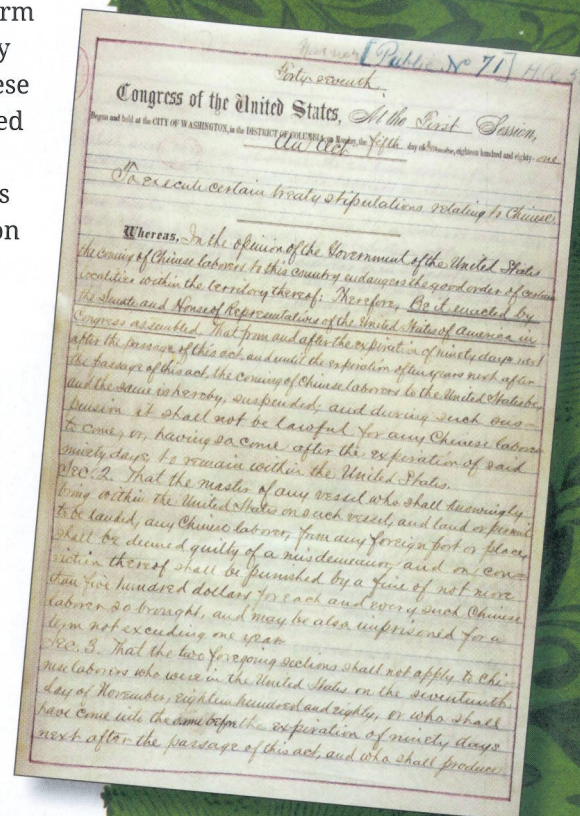 rm
y
ese
ed
s
on
[Public No 71]
Forty-seventh
Congress of the United States, At the First Session,
Begun and held at the CITY OF WASHINGTON, in the DISTRICT OF COLUMBIA, on Monday, the fifth day of December, eighteen hundred and eighty-one
An Act
To execute certain treaty stipulations relating to Chinese.
Whereas, In the opinion of the Government of the United States
the coming of Chinese laborers to this country endangers the good order of certain
localities within the territory thereof: Therefore, Be it enacted by
the Senate and House of Representatives of the United States of America in
Congress assembled, That from and after the expiration of ninety days next
after the passage of this act, and until the expiration of ten years next after
the passage of this act, the coming of Chinese laborers to the United States be,
and the same is hereby, suspended; and during such sus-
pension it shall not be lawful for any Chinese laborer
to come, or, having so come after the expiration of said
ninety days, to remain within the United States.
Sec. 2. That the master of any vessel who shall knowingly
bring within the United States on such vessel, and land or permit
to be landed, any Chinese laborer, from any foreign port or place,
shall be deemed guilty of a misdemeanor, and on con-
viction thereof shall be punished by a fine of not more
than five hundred dollars for each and every such Chinese
laborer so brought, and may be also imprisoned for a
term not exceeding one year.
Sec. 3. That the two foregoing sections shall not apply to Chi-
nese laborers who were in the United States on the seventeenth
day of November, eighteen hundred and eighty, or who shall
have come into the same before the expiration of ninety days
next after the passage of this act, and who shall produce